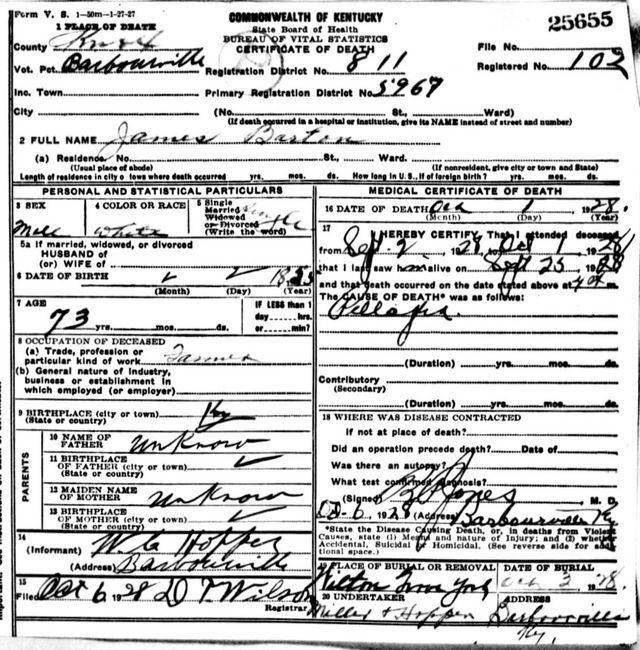 Form V. S. 1-50m-1-27-27
1 PLACE OF DEATH
COMMONWEALTH OF KENTUCKY
State Board of Health
BUREAU OF VITAL STATISTICS
CERTIFICATE OF DEATH
25655
County Knox
File No.
Vot. Pct. Barbourville
Registration District No. 811
Registered No. 102
Inc. Town
Primary Registration District No. 5967
City (No. St., Ward)
(If death occurred in a hospital or institution, give its NAME instead of street and number)
2 FULL NAME James Barton
(a) Residence No. St., Ward.
(Usual place of abode) (If nonresident, give city or town and State)
Length of residence in city or town where death occurred yrs. mos. ds. How long in U. S., if of foreign birth? yrs. mos. ds.
PERSONAL AND STATISTICAL PARTICULARS
3 SEX
Male
4 COLOR OR RACE
White
5 Single
Married
Widowed
or Divorced
(Write the word)
Single
5a If married, widowed, or divorced
HUSBAND of
(or) WIFE of
6 DATE OF BIRTH
(Month) (Day) (Year)
7 AGE
73 yrs. mos. ds.
IF LESS than 1
day hrs.
or min.?
8 OCCUPATION OF DECEASED
(a) Trade, profession or
particular kind of work Farmer
(b) General nature of Industry,
business or establishment in
which employed (or employer)
9 BIRTHPLACE (city or town) Ky
(State or country)
PARENTS
10 NAME OF
FATHER Unknow
11 BIRTHPLACE
OF FATHER (city or town)
(State or country)
12 MAIDEN NAME
OF MOTHER Unknow
13 BIRTHPLACE
OF MOTHER (city or town)
(State or country)
14
(Informant) W. C. Hopper
(Address) Barbourville
15
Filed Oct 6 1928 D T Wilson
Registrar
MEDICAL CERTIFICATE OF DEATH
16 DATE OF DEATH Oct 1 1928.
(Month) (Day) (Year)
17
I HEREBY CERTIFY, That I attended deceased
from Sept. 2, 1928, to Oct 1, 1928,
that I last saw him alive on Sept 25, 1928
and that death occurred on the date stated above at m.
The CAUSE OF DEATH* was as follows:
Pellagra
(Duration) yrs. mos. ds.
Contributory
(Secondary)
(Duration) yrs. mos. ds.
18 WHERE WAS DISEASE CONTRACTED
If not at place of death?
Did an operation precede death? Date of
Was there an autopsy?
What test confirmed diagnosis?
(Signed) Jones M. D.
Oct-6 1928 Barbourville Ky
*State the Disease Causing Death, or, in deaths from Violent
Causes, state (1) Means and nature of Injury; and (2) whether
Accidental, Suicidal or Homicidal. (See reverse side for additional space.)
19 PLACE OF BURIAL OR REMOVAL
DATE OF BURIAL
Oct 3 1928.
20 UNDERTAKER
Miller & Hopper
ADDRESS
Barbourville
Ky.